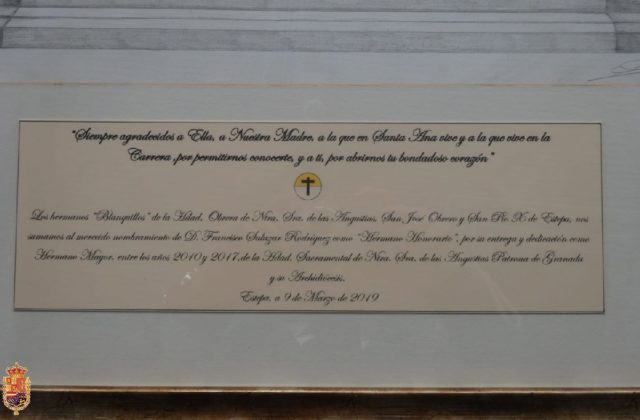 "Siempre agradecidos a Ella, a Nuestra Madre, a la que en Santa Ana vive y a la que vive en la
Carrera ,por permitirnos conocerte, y a tí, por abrirnos tu bondadoso corazón"
Los hermanos "Blanquillos" de la Hdad. Obrera de Ntra. Sra. de las Angustias, San José Obrero y San Pío X de Estepa, nos
sumamos al merecido nombramiento de D. Francisco Salazar Rodríguez como "Hermano Honorario", por su entrega y dedicación como
Hermano Mayor, entre los años 2010 y 2017,de la Hdad. Sacramental de Ntra. Sra. de las Angustias Patrona de Granada
y su Archidiócesis.
Estepa, a 9 de Marzo de 2019